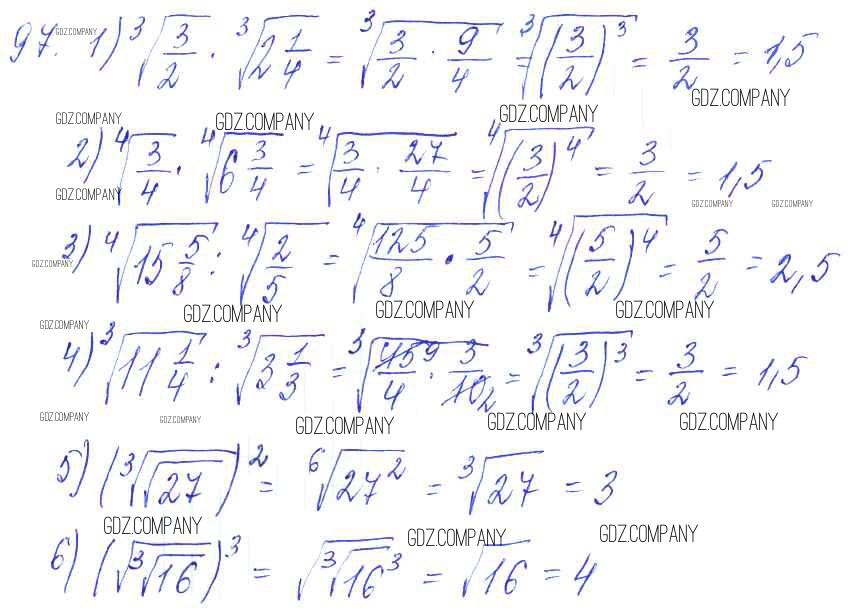 97. 1) ∛(3/2) · ∛(2 1/4) = ∛(3/2 · 9/4) = ∛((3/2)³) = 3/2 = 1,5
GDZ.COMPANY
GDZ.COMPANY
GDZ.COMPANY GDZ.COMPANY GDZ.COMPANY
2) ∜(3/4) · ∜(6 3/4) = ∜(3/4 · 27/4) = ∜((3/2)⁴) = 3/2 = 1,5
GDZ.COMPANY GDZ.COMPANY GDZ.COMPANY
3) ∜(15 5/8) : ∜(2/5) = ∜(125/8 · 5/2) = ∜((5/2)⁴) = 5/2 = 2,5
GDZ.COMPANY
GDZ.COMPANY GDZ.COMPANY GDZ.COMPANY
GDZ.COMPANY
4) ∛(11 1/4) : ∛(3 1/3) = ∛(45 9/4 · 3/10 2) = ∛((3/2)³) = 3/2 = 1,5
GDZ.COMPANY GDZ.COMPANY GDZ.COMPANY GDZ.COMPANY GDZ.COMPANY
5) (∛√27)² = ⁶√27² = ∛27 = 3
GDZ.COMPANY GDZ.COMPANY GDZ.COMPANY
6) (√∛16)³ = √∛16³ = √16 = 4